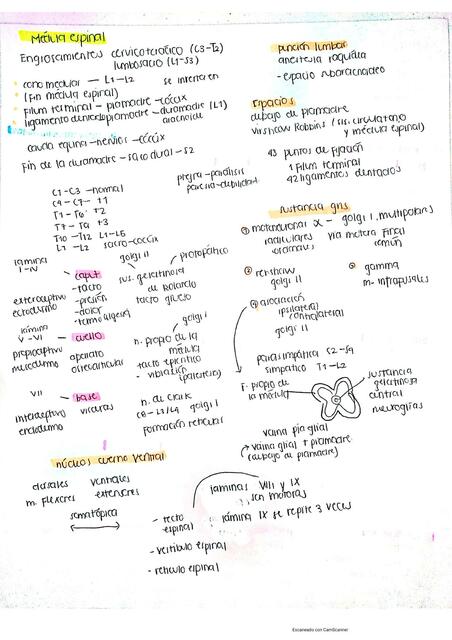 Médula espinal
Engrosamientos cervicotorácico (C3-T2)
lumbosacro (L1-S3)
cono medular — L1-L2 se insertan en
(fin médula espinal)
Filum terminal - piamadre - cóccix
ligamento dentado piamadre - duramadre (L1)
aracnoide
cauda equina - nervios - cóccix
Fin de la duramadre - saco dural - S2
C1-C3 - normal
C4-C7 - +1
T1-T6 +2
T7-T9 +3
T10-T12 L1-L5
L1-L2 sacro-coccix
plejia - parálisis
paresia - debilidad
lamina
I-IV
golgi II
protopático
caput
- tacto
- presión
- dolor
- termoalgesia
sus. gelatinosa
de Rolando
tacto grueso
exteroceptivo
ectodermo
lámina
V-VI
golgi I
cuello
propioceptivo
mesodermo
aparato
osteoarticular
n. propio de la
médula
tacto epicrítico
- vibración
(palestesia)
VII
base
interoceptivo
endodermo
vísceras
n. de Clark
C8-L3/L4 golgi I
formación reticular
núcleos cuerno ventral
dorsales ventrales
m. flexores extensores
somatópica
punción lumbar
anestesia raquídea
- espacio subaracnoideo
Espacios
debajo de piamadre
Virshow Robbins (sis. circulatorio
y médula espinal)
43 puntos de fijación
1 filum terminal
42 ligamentos dentados
sustancia gris
motoneurona α - golgi I, multipolares
radiculares vía motora final
común
renshaw
golgi II
gamma
m. intrafusales
asociación
ipsilateral
contralateral
golgi II
parasimpática S2-S4
simpático T1-L2
F. propio de
la médula
sustancia
gelatinosa
central
neuroglias
vaina pia glial
vaina glial + piamadre
(debajo de piamadre)
laminas VIII y IX
son motoras
lámina IX se repite 3 veces
- tecto
espinal
- vestíbulo espinal
- retículo espinal
Escaneado con CamScanner